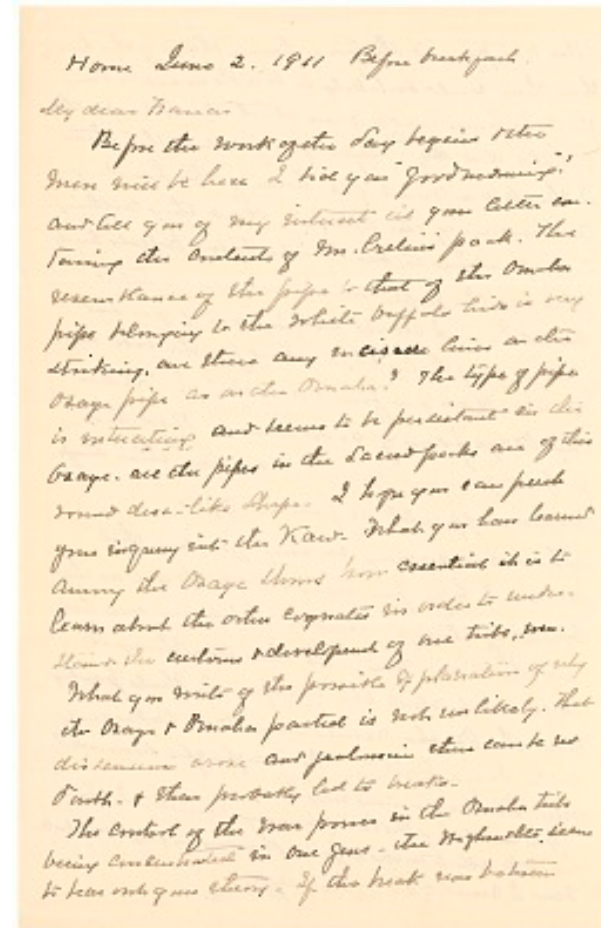 Home June 2. 1911 Before breakfast.
My dear Francis
Before the work of the day begins & the
men will be here I bid you "good morning"!
and tell you of my interest in your letter con-
cerning the contents of Mr. pack. The
resemblance of the pipe to that of the Omaha
pipe belonging to the White Buffalo hide is very
striking. are there any incised lines on the
Osage pipe as on the Omaha? The type of pipe
is interesting and seems to be persistent in the
Osage. are the pipes in the Sacred packs all of this
round disc-like shape. I hope you can push
your inquiry into the Kaw. What you have learned
among the Osage shows how essential it is to
learn about the other cognates in order to under-
stand the customs & development of one tribe, even.
What you write of the possible explanation of why
the Osage & Omaha parted is not unlikely. That
dissension arose and jealousies there can be no
doubt. & these probably led to breaks.
The control of the war powers in the Omaha tribe
being concentrated in one gens - the seems
to bear out your theory. If the break was between